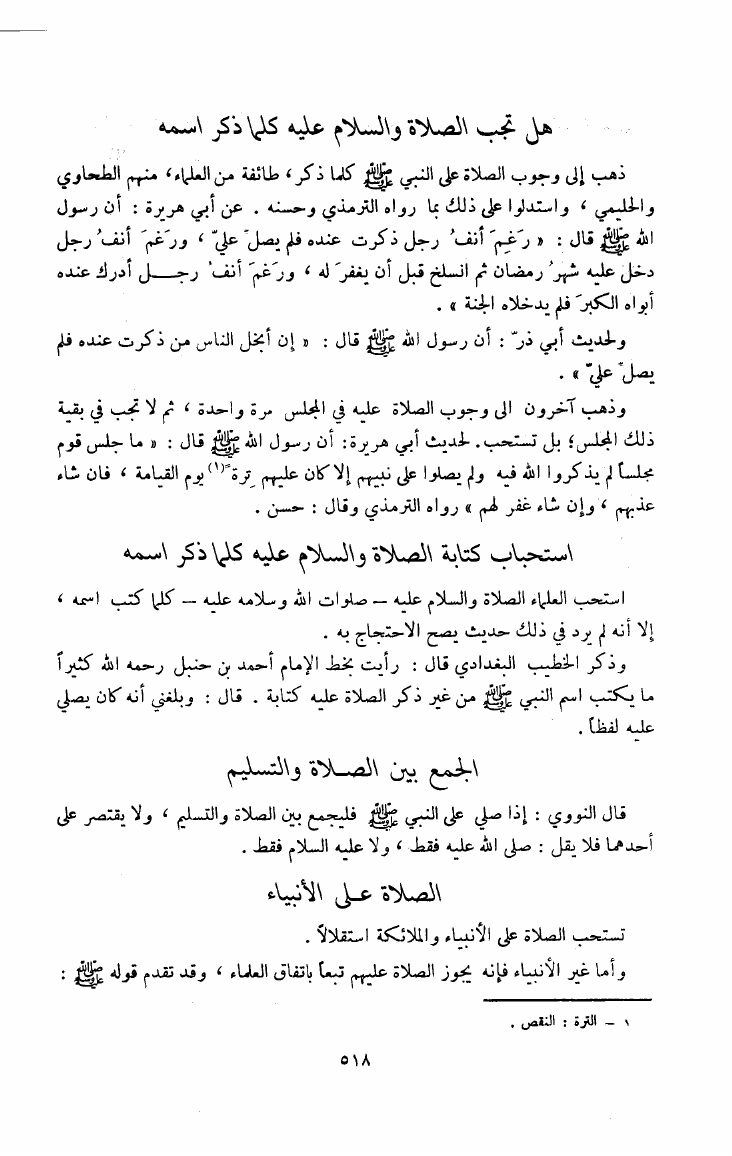 هل تجب الصلاة والسلام عليه كلما ذكر اسمه
ذهب إلى وجوب الصلاة على النبي ﷺ كلما ذكر ، طائفة من العلماء ، منهم الطحاوي
والحليمي ، واستدلوا على ذلك بما رواه الترمذي وحسنه . عن أبي هريرة : أن رسول
الله ﷺ قال : « رَغِمَ أنفُ رجل ذكرت عنده فلم يصلّ عليّ ، ورغمَ أنفُ رجل
دخل عليه شهرُ رمضان ثم انسلخ قبل أن يغفرَ له ، ورغمَ أنفُ رجــل أدرك عنده
أبواه الكبرَ فلم يدخلاه الجنة » .
ولحديث أبي ذرّ : أن رسول الله ﷺ قال : « إن أبخل الناس من ذكرت عنده فلم
يصلّ عليّ » .
وذهب آخرون الى وجوب الصلاة عليه في المجلس مرة واحدة ، ثم لا تجب في بقية
ذلك المجلس؛ بل تستحب. لحديث أبي هريرة: أن رسول الله ﷺ قال : « ما جلس قوم
مجلساً لم يذكروا الله فيه ولم يصلوا على نبيهم إلا كان عليهم تِرة ً(١) يوم القيامة ، فان شاء
عذبهم ، وإن شاء غفر لهم » رواه الترمذي وقال : حسن .
استحباب كتابة الصلاة والسلام عليه كلما ذكر اسمه
استحب العلماء الصلاة والسلام عليه – صلوات الله وسلامه عليه – كلما كتب اسمه ،
إلا أنه لم يرد في ذلك حديث يصح الاحتجاج به .
وذكر الخطيب البغدادي قال : رأيت بخط الإمام أحمد بن حنبل رحمه الله كثيراً
ما يكتب اسم النبي ﷺ من غير ذكر الصلاة عليه كتابة . قال : وبلغني أنه كان يصلي
عليه لفظاً .
الجمع بين الصــلاة والتسليم
قال النووي : إذا صلي على النبي ﷺ فليجمع بين الصلاة والتسليم ، ولا يقتصر على
أحدهما فلا يقل : صلى الله عليه فقط ، ولا عليه السلام فقط .
الصلاة على الأنبياء
تستحب الصلاة على الأنبياء والملائكة استقلالاً .
وأما غير الأنبياء فإنه يجوز الصلاة عليهم تبعاً باتفاق العلماء ، وقد تقدم قوله ﷺ :
١ – الترة : النقص .
٥١٨